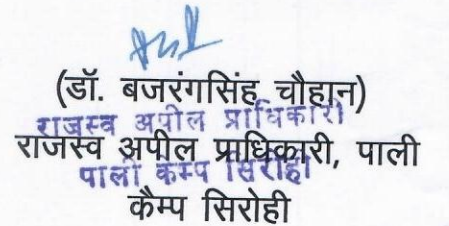 (डॉ. बजरंगसिंह चौहान)
राजस्व अपील प्राधिकारी
राजस्व अपील प्राधिकारी, पाली
पाली कैम्प सिरोही
कैम्प सिरोही